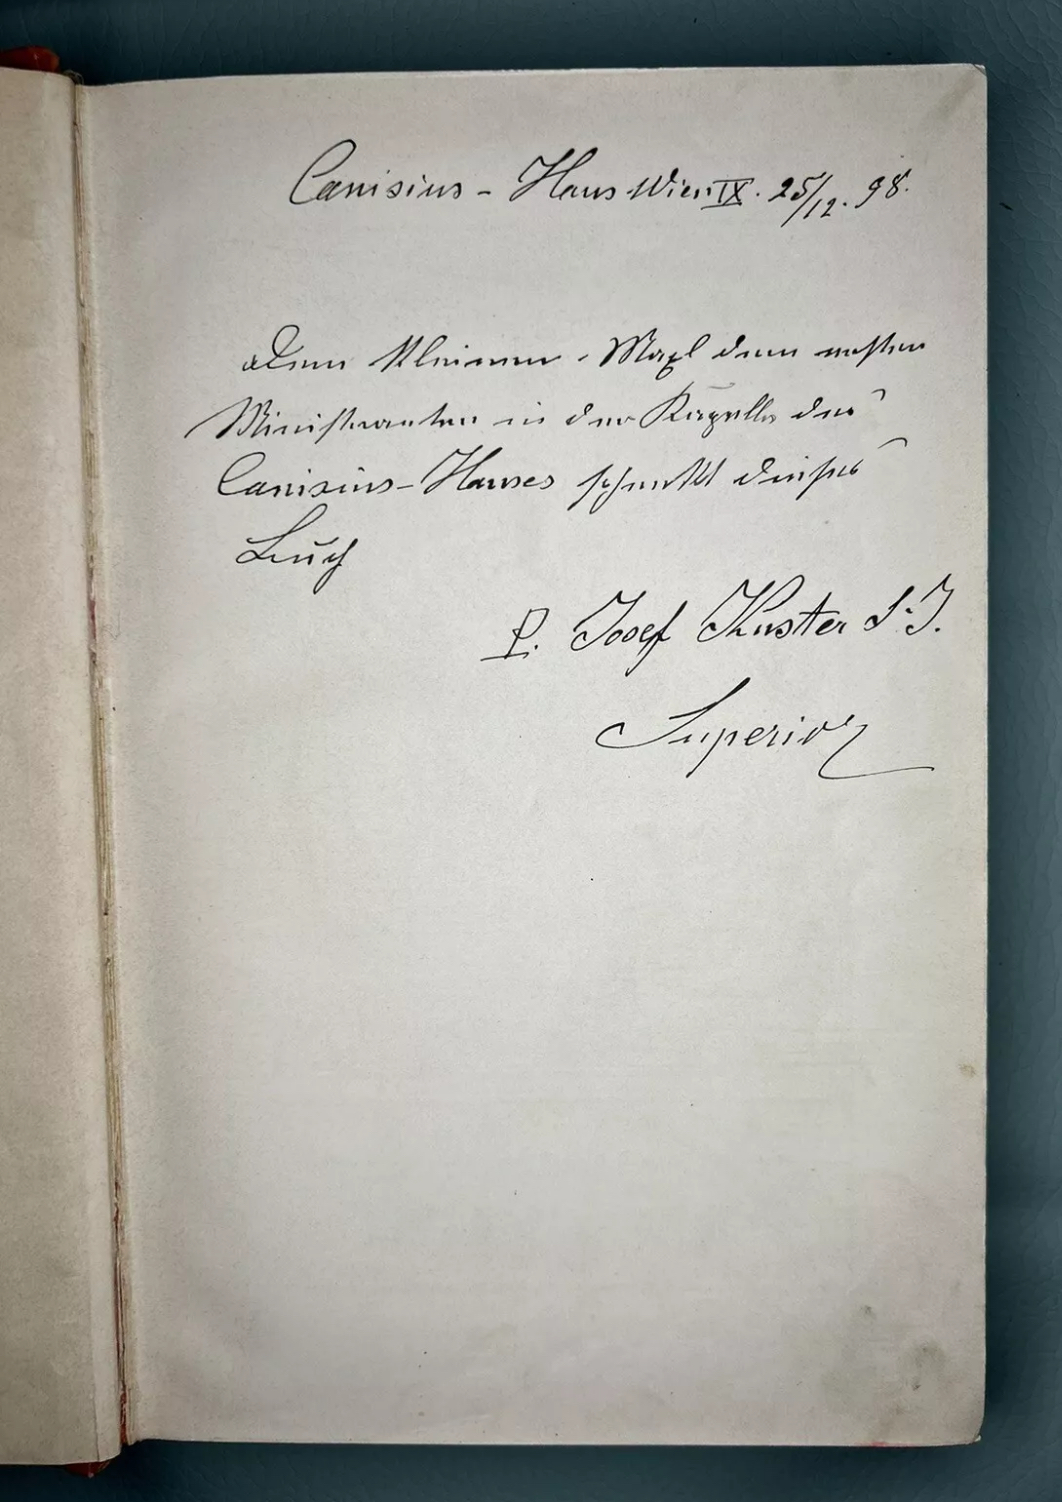 Canisius-Haus Wien IX. 25/12. 98.
Dem kleinen Maxl dem ersten
Ministranten in der Kapelle des
Canisius-Hauses schenkt dieses
Buch
P. Josef Kuster S.J.
Superior